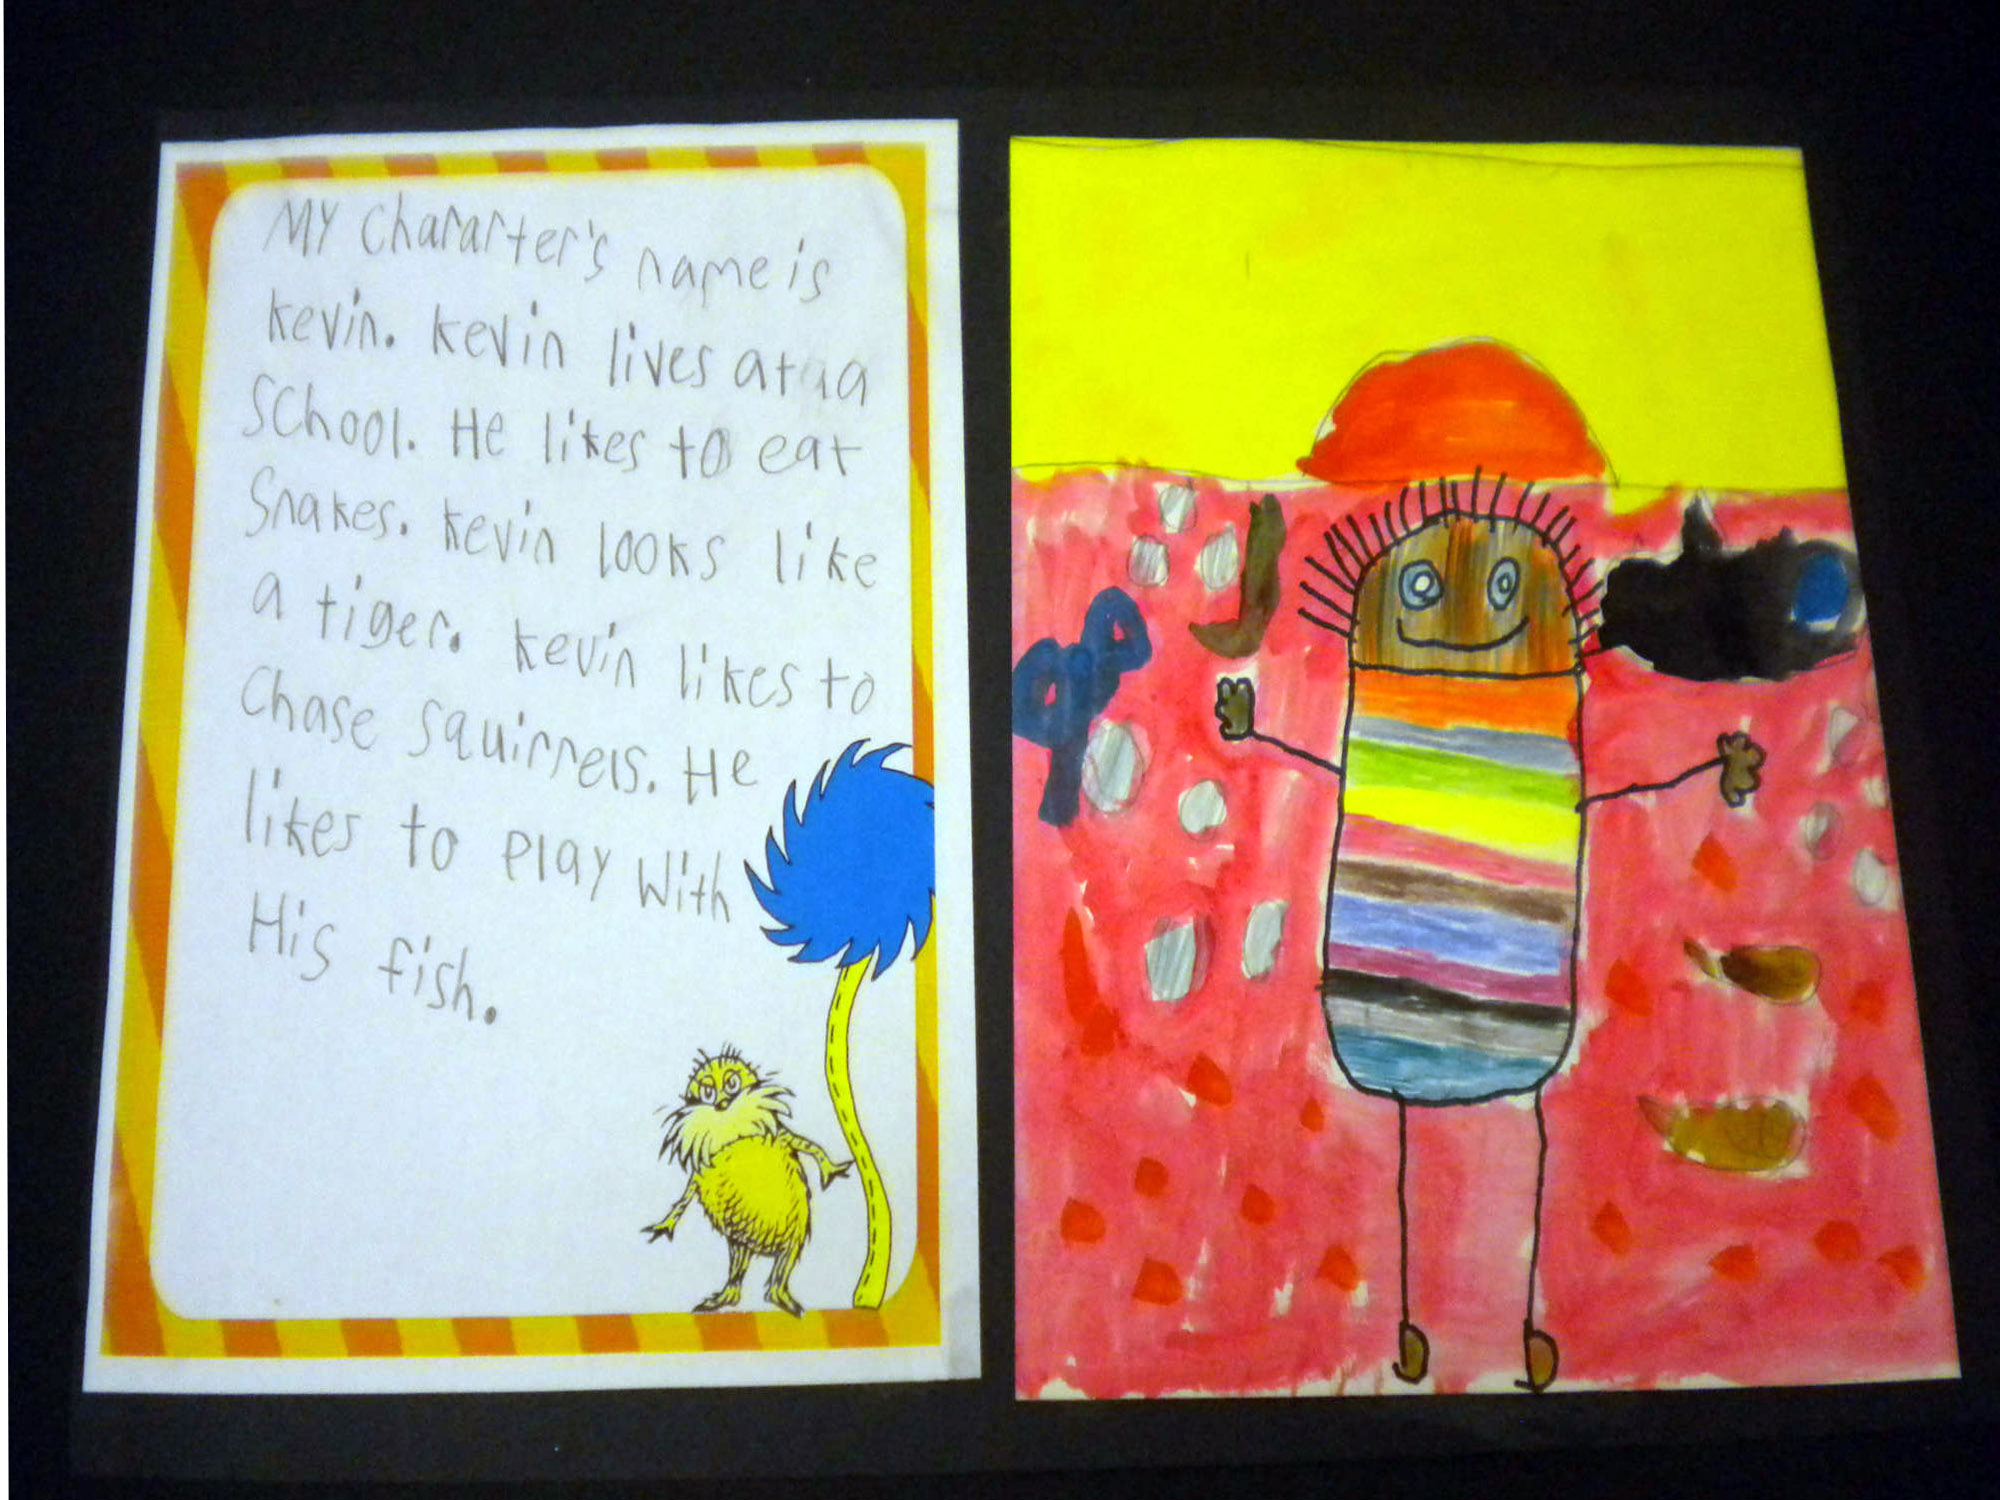 My character's name is
Kevin. Kevin lives at a
School. He likes to eat
Snakes. Kevin looks like
a tiger. Kevin likes to
Chase squirrels. He
likes to play with
His fish.